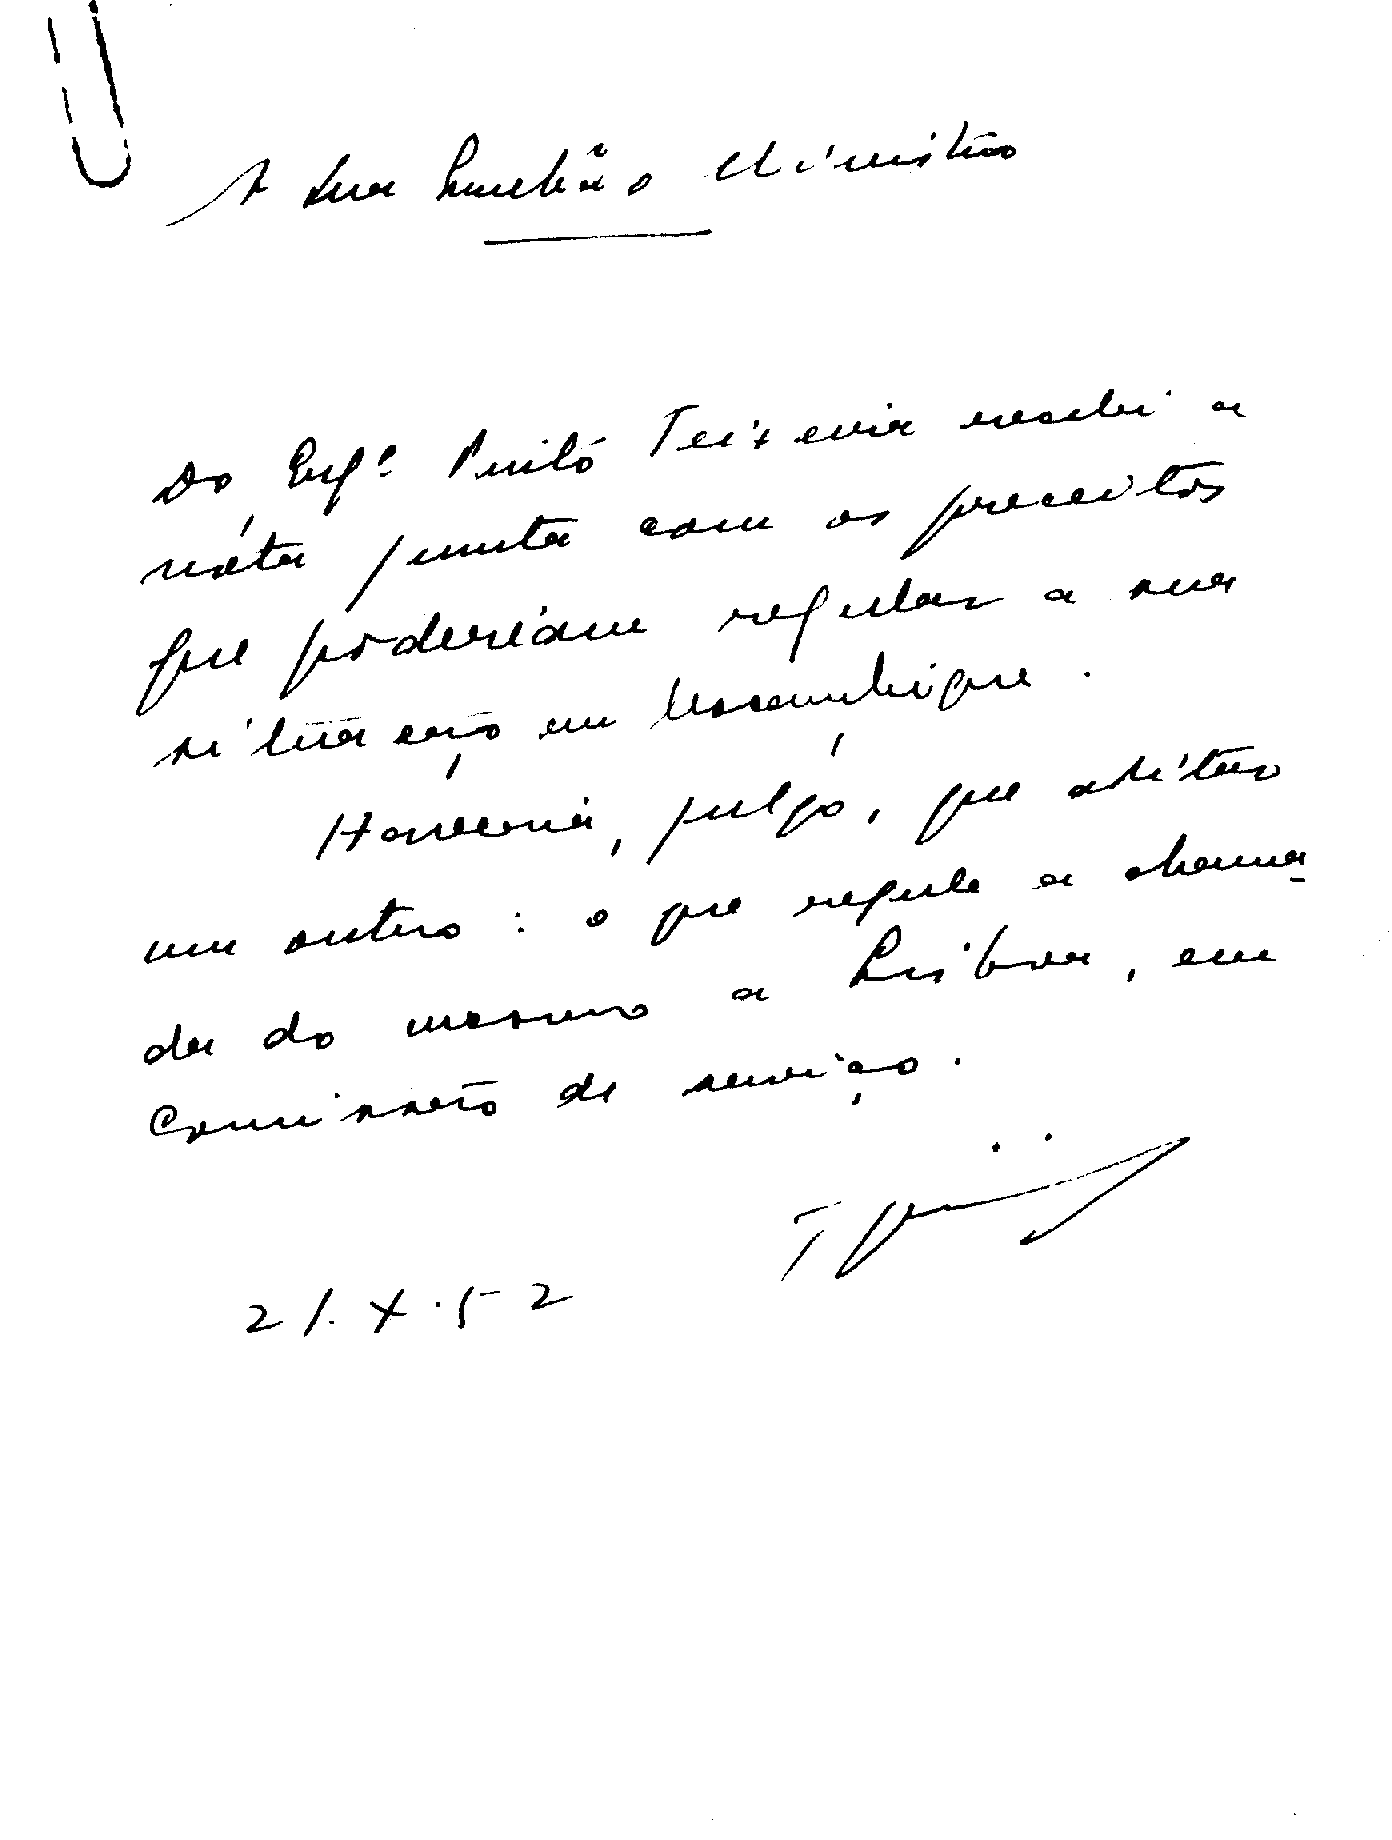 A Sua Excelência o Ministro
Do Engº. Pinto Teixeira recebi a
nóta junta com os preceitos
que poderiam regular a sua
situação em Moçambique.
Haveria, julgo, que aditar
um outro: o que regule a chama
da do mesmo a Lisboa, em
comissão de serviço.
21.X.52